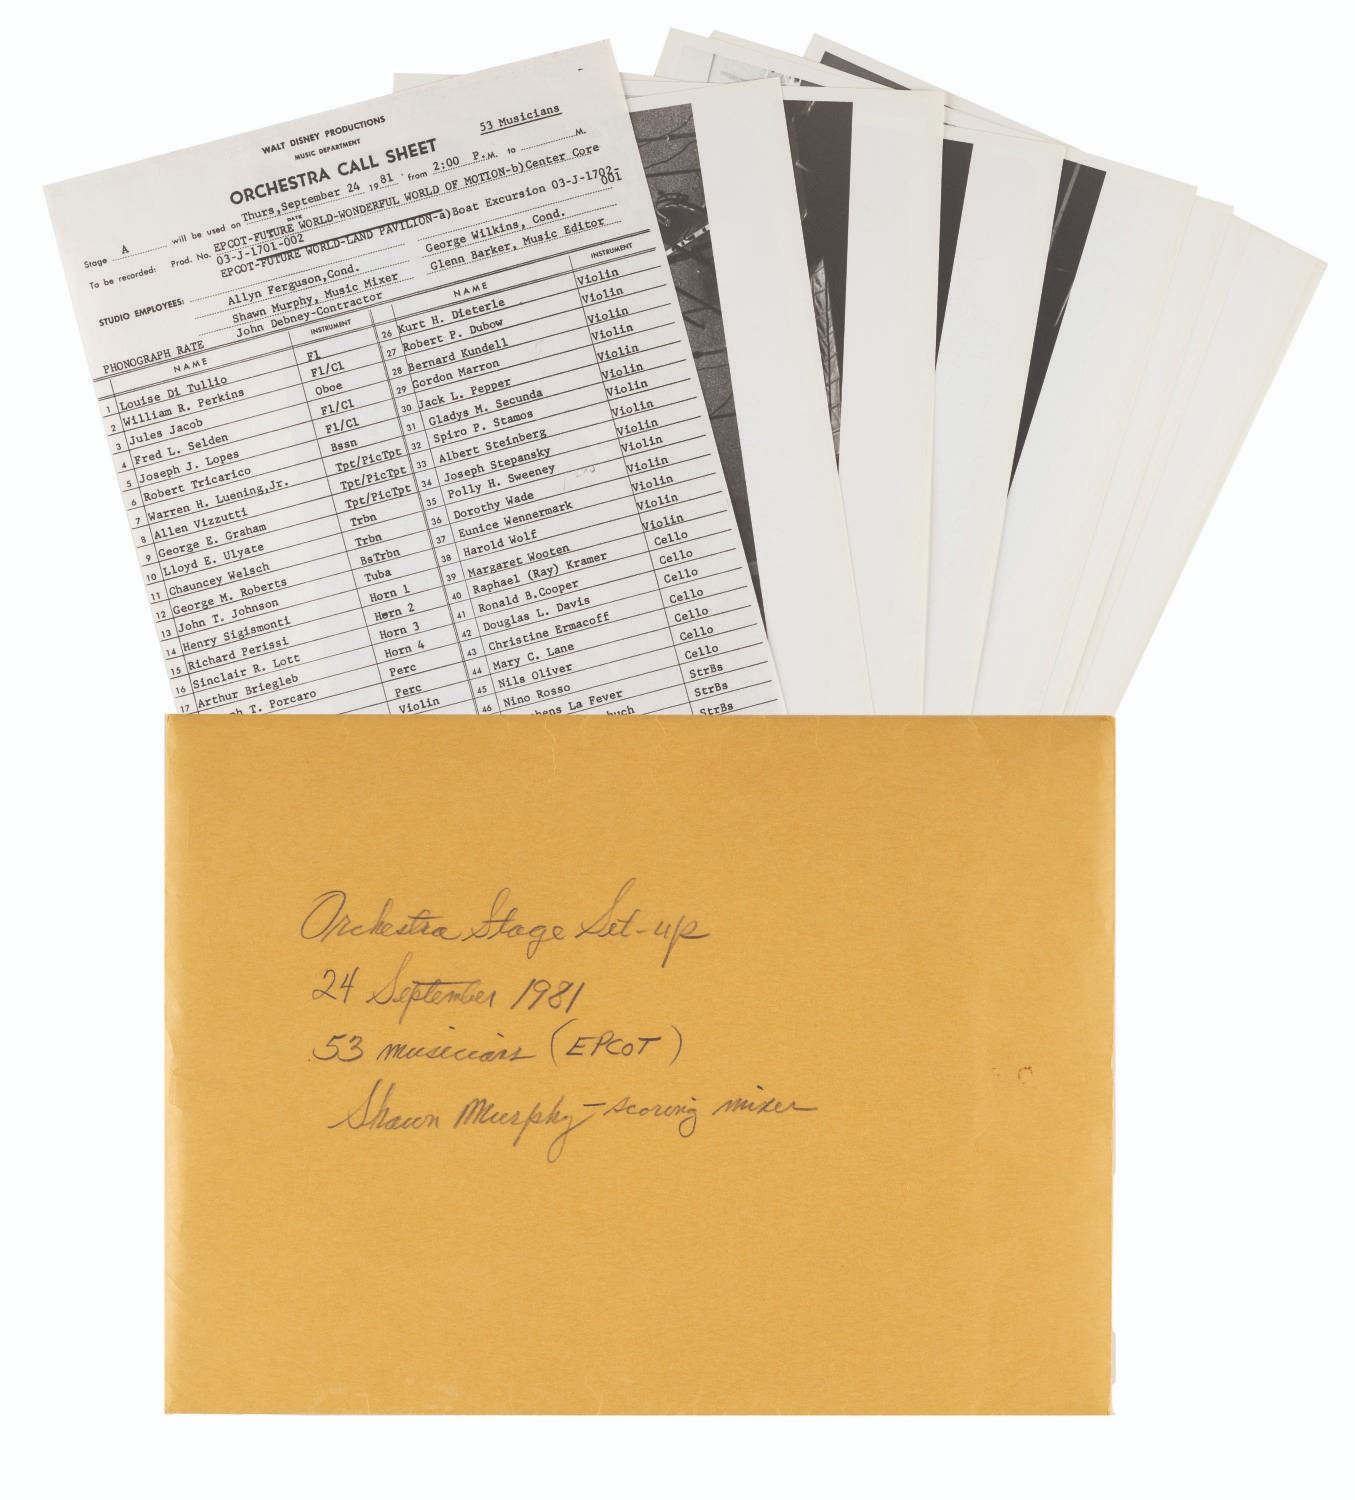 WALT DISNEY PRODUCTIONS
MUSIC DEPARTMENT
53 Musicians
ORCHESTRA CALL SHEET
Stage A will be used on Thurs, September 24 1981 from 2:00 P.M. to M.
DATE
To be recorded: Prod. No. EPCOT-FUTURE WORLD-WONDERFUL WORLD OF MOTION-b)Center Core
03-J-1701-002
EPCOT-FUTURE WORLD-LAND PAVILION-a)Boat Excursion 03-J-1702-001
STUDIO EMPLOYEES: Allyn Ferguson,Cond. George Wilkins, Cond.
Shawn Murphy, Music Mixer Glenn Barker, Music Editor
John Debney-Contractor
PHONOGRAPH RATE
NAME INSTRUMENT
1 Louise Di Tullio Fl
2 William R. Perkins Fl/Cl
3 Jules Jacob Oboe
4 Fred L. Selden Fl/Cl
5 Joseph J. Lopes Fl/Cl
6 Robert Tricarico Bssn
7 Warren H. Luening,Jr. Tpt/PicTpt
8 Allen Vizzutti Tpt/PicTpt
9 George E. Graham Tpt/PicTpt
10 Lloyd E. Ulyate Trbn
11 Chauncey Welsch Trbn
12 George M. Roberts BsTrbn
13 John T. Johnson Tuba
14 Henry Sigismonti Horn 1
15 Richard Perissi Horn 2
16 Sinclair R. Lott Horn 3
17 Arthur Briegleb Horn 4
h T. Porcaro Perc
Perc
Violin
NAME INSTRUMENT
26 Kurt H. Dieterle Violin
27 Robert P. Dubow Violin
28 Bernard Kundell Violin
29 Gordon Marron Violin
30 Jack L. Pepper Violin
31 Gladys M. Secunda Violin
32 Spiro P. Stamos Violin
33 Albert Steinberg Violin
34 Joseph Stepansky Violin
35 Polly H. Sweeney Violin
36 Dorothy Wade Violin
37 Eunice Wennermark Violin
38 Harold Wolf Violin
39 Margaret Wooten Violin
40 Raphael (Ray) Kramer Cello
41 Ronald B.Cooper Cello
42 Douglas L. Davis Cello
43 Christine Ermacoff Cello
44 Mary C. Lane Cello
45 Nils Oliver Cello
46 Nino Rosso Cello
hens La Fever StrBs
buch StrBs
StrBs
Orchestra Stage Set-up
24 September 1981
53 musicians (EPCOT)
Shawn Murphy - scoring mixer